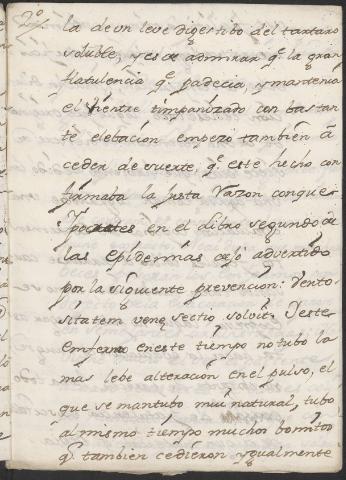 2º
la de un leve digestibo del tartaro
soluble, y es de admirar q.e la gran
flatulencia q.e padecia, y mantenia
el vientre timpanizado con bastan
te elebacion empezo tambien à
ceder de suerte, q.e este hecho con
firmaba la justa razon con que
Ipocrates en el libro segundo de
las epidermias dejó advertido
por la siguiente prevencion: Vento
sitatem venę sectio solvit. Deste
enfermo en este tiempo no tubo la
mas lebe alteracion en el pulso, el
que se mantubo mui natural, tubo
al mismo tiempo muchos bomitos
q.e tambien cedieron ygualmente